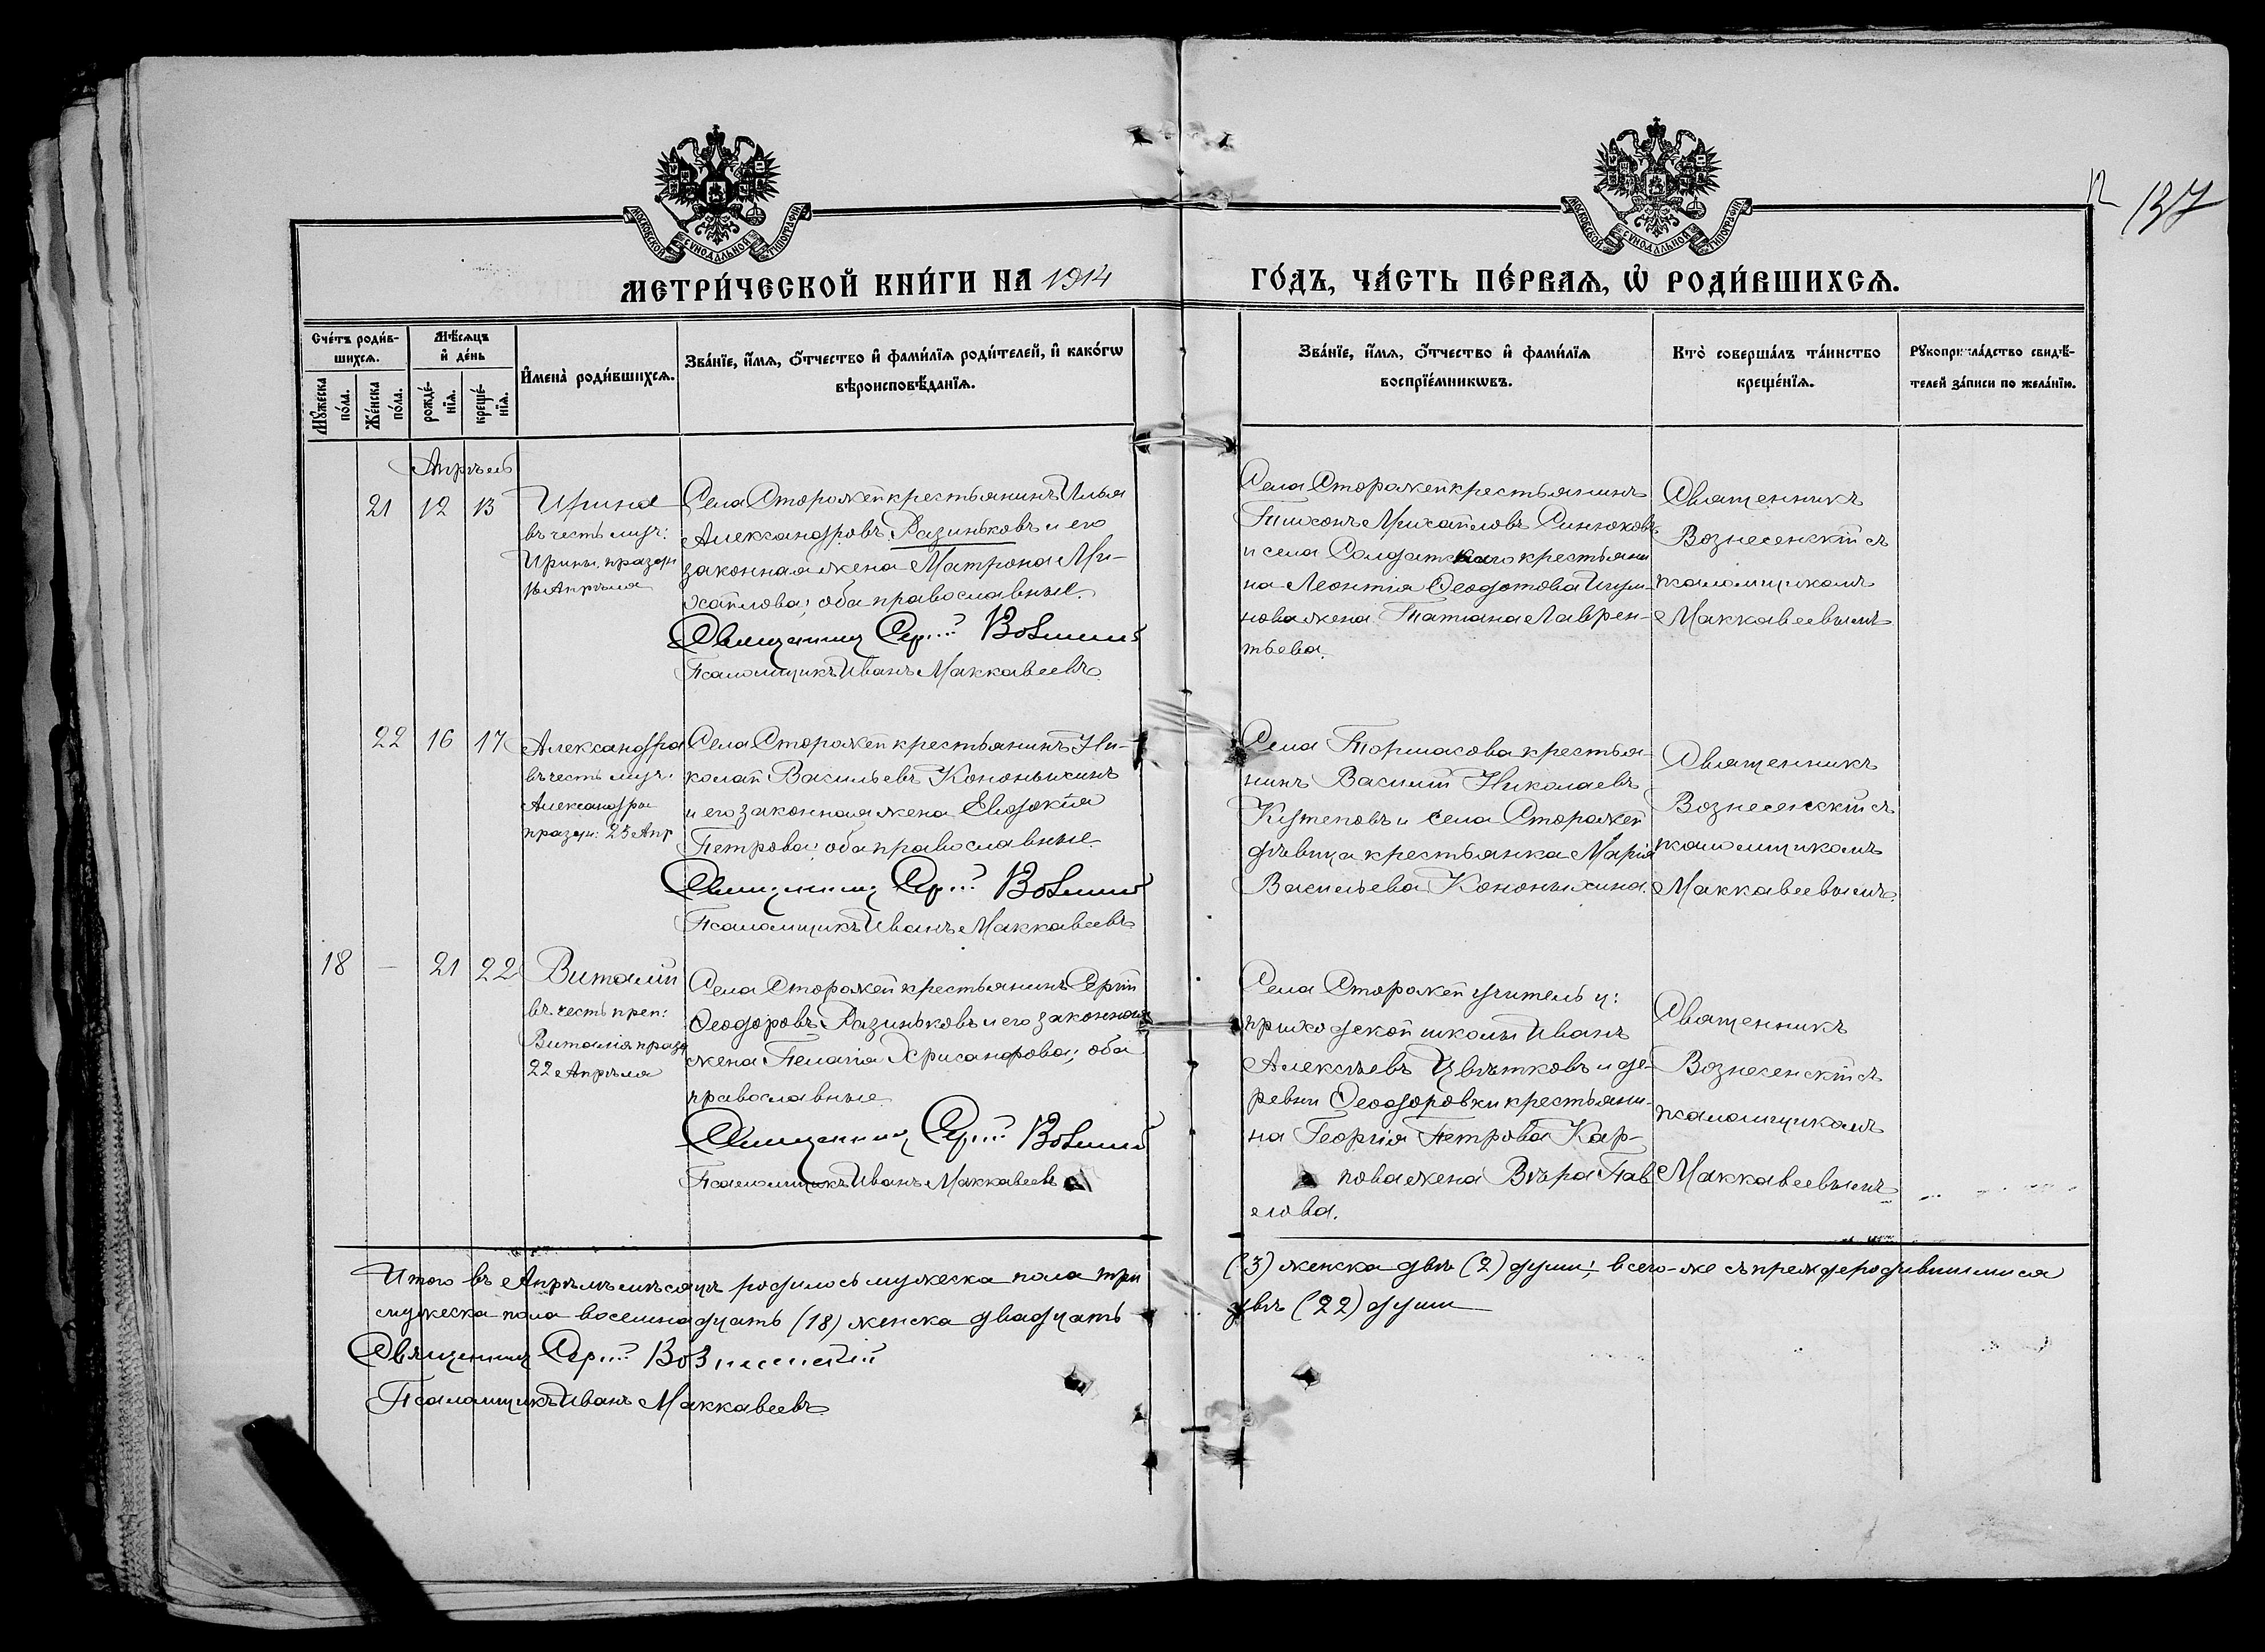 12
137
МОСКОВСКОЙ СѴНОДАЛЬНОЙ ТИПОГРАФІИ
МОСКОВСКОЙ СѴНОДАЛЬНОЙ ТИПОГРАФІИ
МЕТРИ́ЧЕСКОЙ КНИ́ГИ НА 1914
ГО́ДЪ, ЧА́СТЬ ПЕ́РВАѦ, Ѡ҆ РОДИ́ВШИХСѦ.
Сче́тъ роди́в-
шихсѧ.
Мꙋ́жеска
по́ла.
Же́нска
по́ла.
Мѣ́сѧцъ
и҆ де́нь
рожде́-
нїѧ.
креще́-
нїѧ.
И҆мена̀ роди́вшихсѧ.
Зва́нїе, и҆́мѧ, ѻ҆́тчество и҆ фами́лїѧ роди́телей, и҆ како́гѡ
вѣроисповѣ́данїѧ.
Зва́нїе, и҆́мѧ, ѻ҆́тчество и҆ фами́лїѧ
воспрїе́мникѡвъ.
Кто̀ соверша́лъ та́инство
креще́нїѧ.
Рꙋкоприкла́дство свидѣ́-
телей за́писи по жела́нїю.
Апрѣль
21 12 13
Ирина
въ честь муч:
Ирины, праздн
16 Апрѣля
Села Сторожей крестьянинъ Илья
Александровъ Разиньковъ и его
законная жена Матрона Ми-
хайлова; оба православные.
Священникъ Сергій Вознесенскій
Псаломщикъ Иванъ Маккавеевъ.
Села Сторожей крестьянинъ
Тихонъ Михайловъ Синюковъ
и села Солдатскаго крестьяни
на Леонтія Ѳеодотова
нова жена Татіана Лаврен-
тьева.
Священникъ
Вознесенскій съ
псаломщикомъ
Маккавеевымъ
22 16 17
Александра
въ честь муч.
Александры
праздн: 23 Апр
Села Сторожей крестьянинъ Ни-
колай Васильевъ Кононыхинъ
и его законная жена Евдокія
Петрова; оба православные
Священникъ Сергій Вознесенскій
Псаломщикъ Иванъ Маккавеевъ
Села Тормасова крестья-
нинъ Василій Николаевъ
Кутеповъ и села Сторожей
дѣвица крестьянка Марія
Васильева Кононыхина.
Священникъ
Вознесенскій съ
псаломщикомъ
Маккавеевымъ.
18 — 21 22
Виталій
въ честь преп:
Виталія празд
22 Апрѣля
Села Сторожей крестьянинъ Сергій
Ѳеодоровъ Разиньковъ и его законная
жена Пелагія Хрисанфова; оба
православные
Священникъ Сергій Вознесенскій
Псаломщикъ Иванъ Маккавеевъ
Села Сторожей учитель ц:
приходской школы Иванъ
Алексѣевъ Цвѣтковъ и де-
ревни Ѳеодоровки крестьяни-
на Георгія Петрова Кар-
пова жена Вѣра Пав
елова.
Священникъ
Вознесенскій съ
псаломщикомъ
Маккавеевымъ
Итого въ Апрѣлѣ мѣсяцѣ родилось мужеска пола три
(3) женска двѣ (2) души; всего-же съ прежде родившимися
мужеска пола восемнадцать (18) женска двадцать
двѣ (22) души
Священникъ Сергій Вознесенскій
Псаломщикъ Иванъ Маккавеевъ.